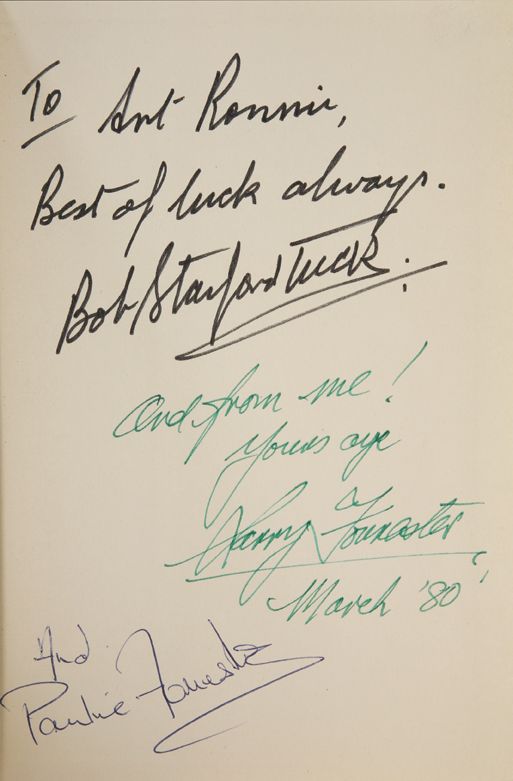 To Ant Ronnie,
Best of luck always.
Bob Stanford Tuck.
And from me!
Yours aye
Larry Forrester
March '80
And
Pauline Forrester